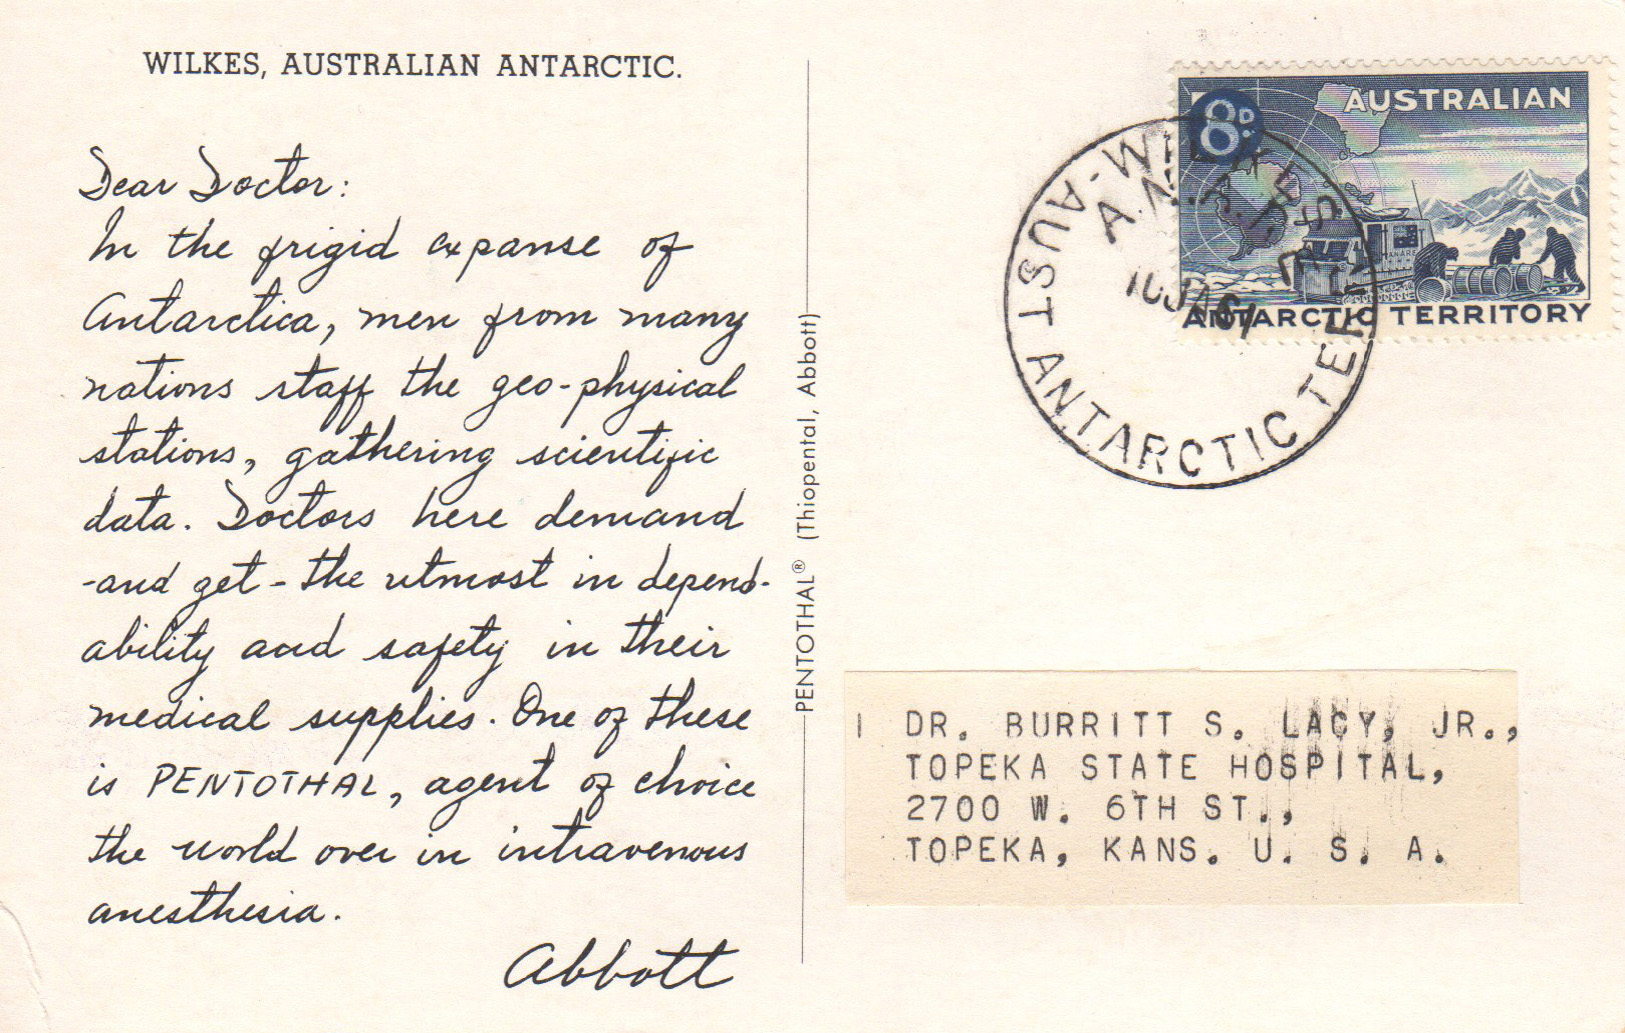 WILKES, AUSTRALIAN ANTARCTIC.
Dear Doctor:
In the frigid expanse of
Antarctica, men from many
nations staff the geo-physical
stations, gathering scientific
data. Doctors here demand
-and get - the utmost in depend-
ability and safety in their
medical supplies. One of these
is PENTOTHAL, agent of choice
the world over in intravenous
anesthesia.
Abbott
PENTOTHAL® (Thiopental, Abbott)
8D.
AUSTRALIAN
ANTARCTIC TERRITORY
WILKES
A.N.A.R.E.
10 JA 61
-AUST ANTARCTIC TER
1 DR. BURRITT S. LACY, JR.,
TOPEKA STATE HOSPITAL,
2700 W. 6TH ST.,
TOPEKA, KANS. U. S. A.